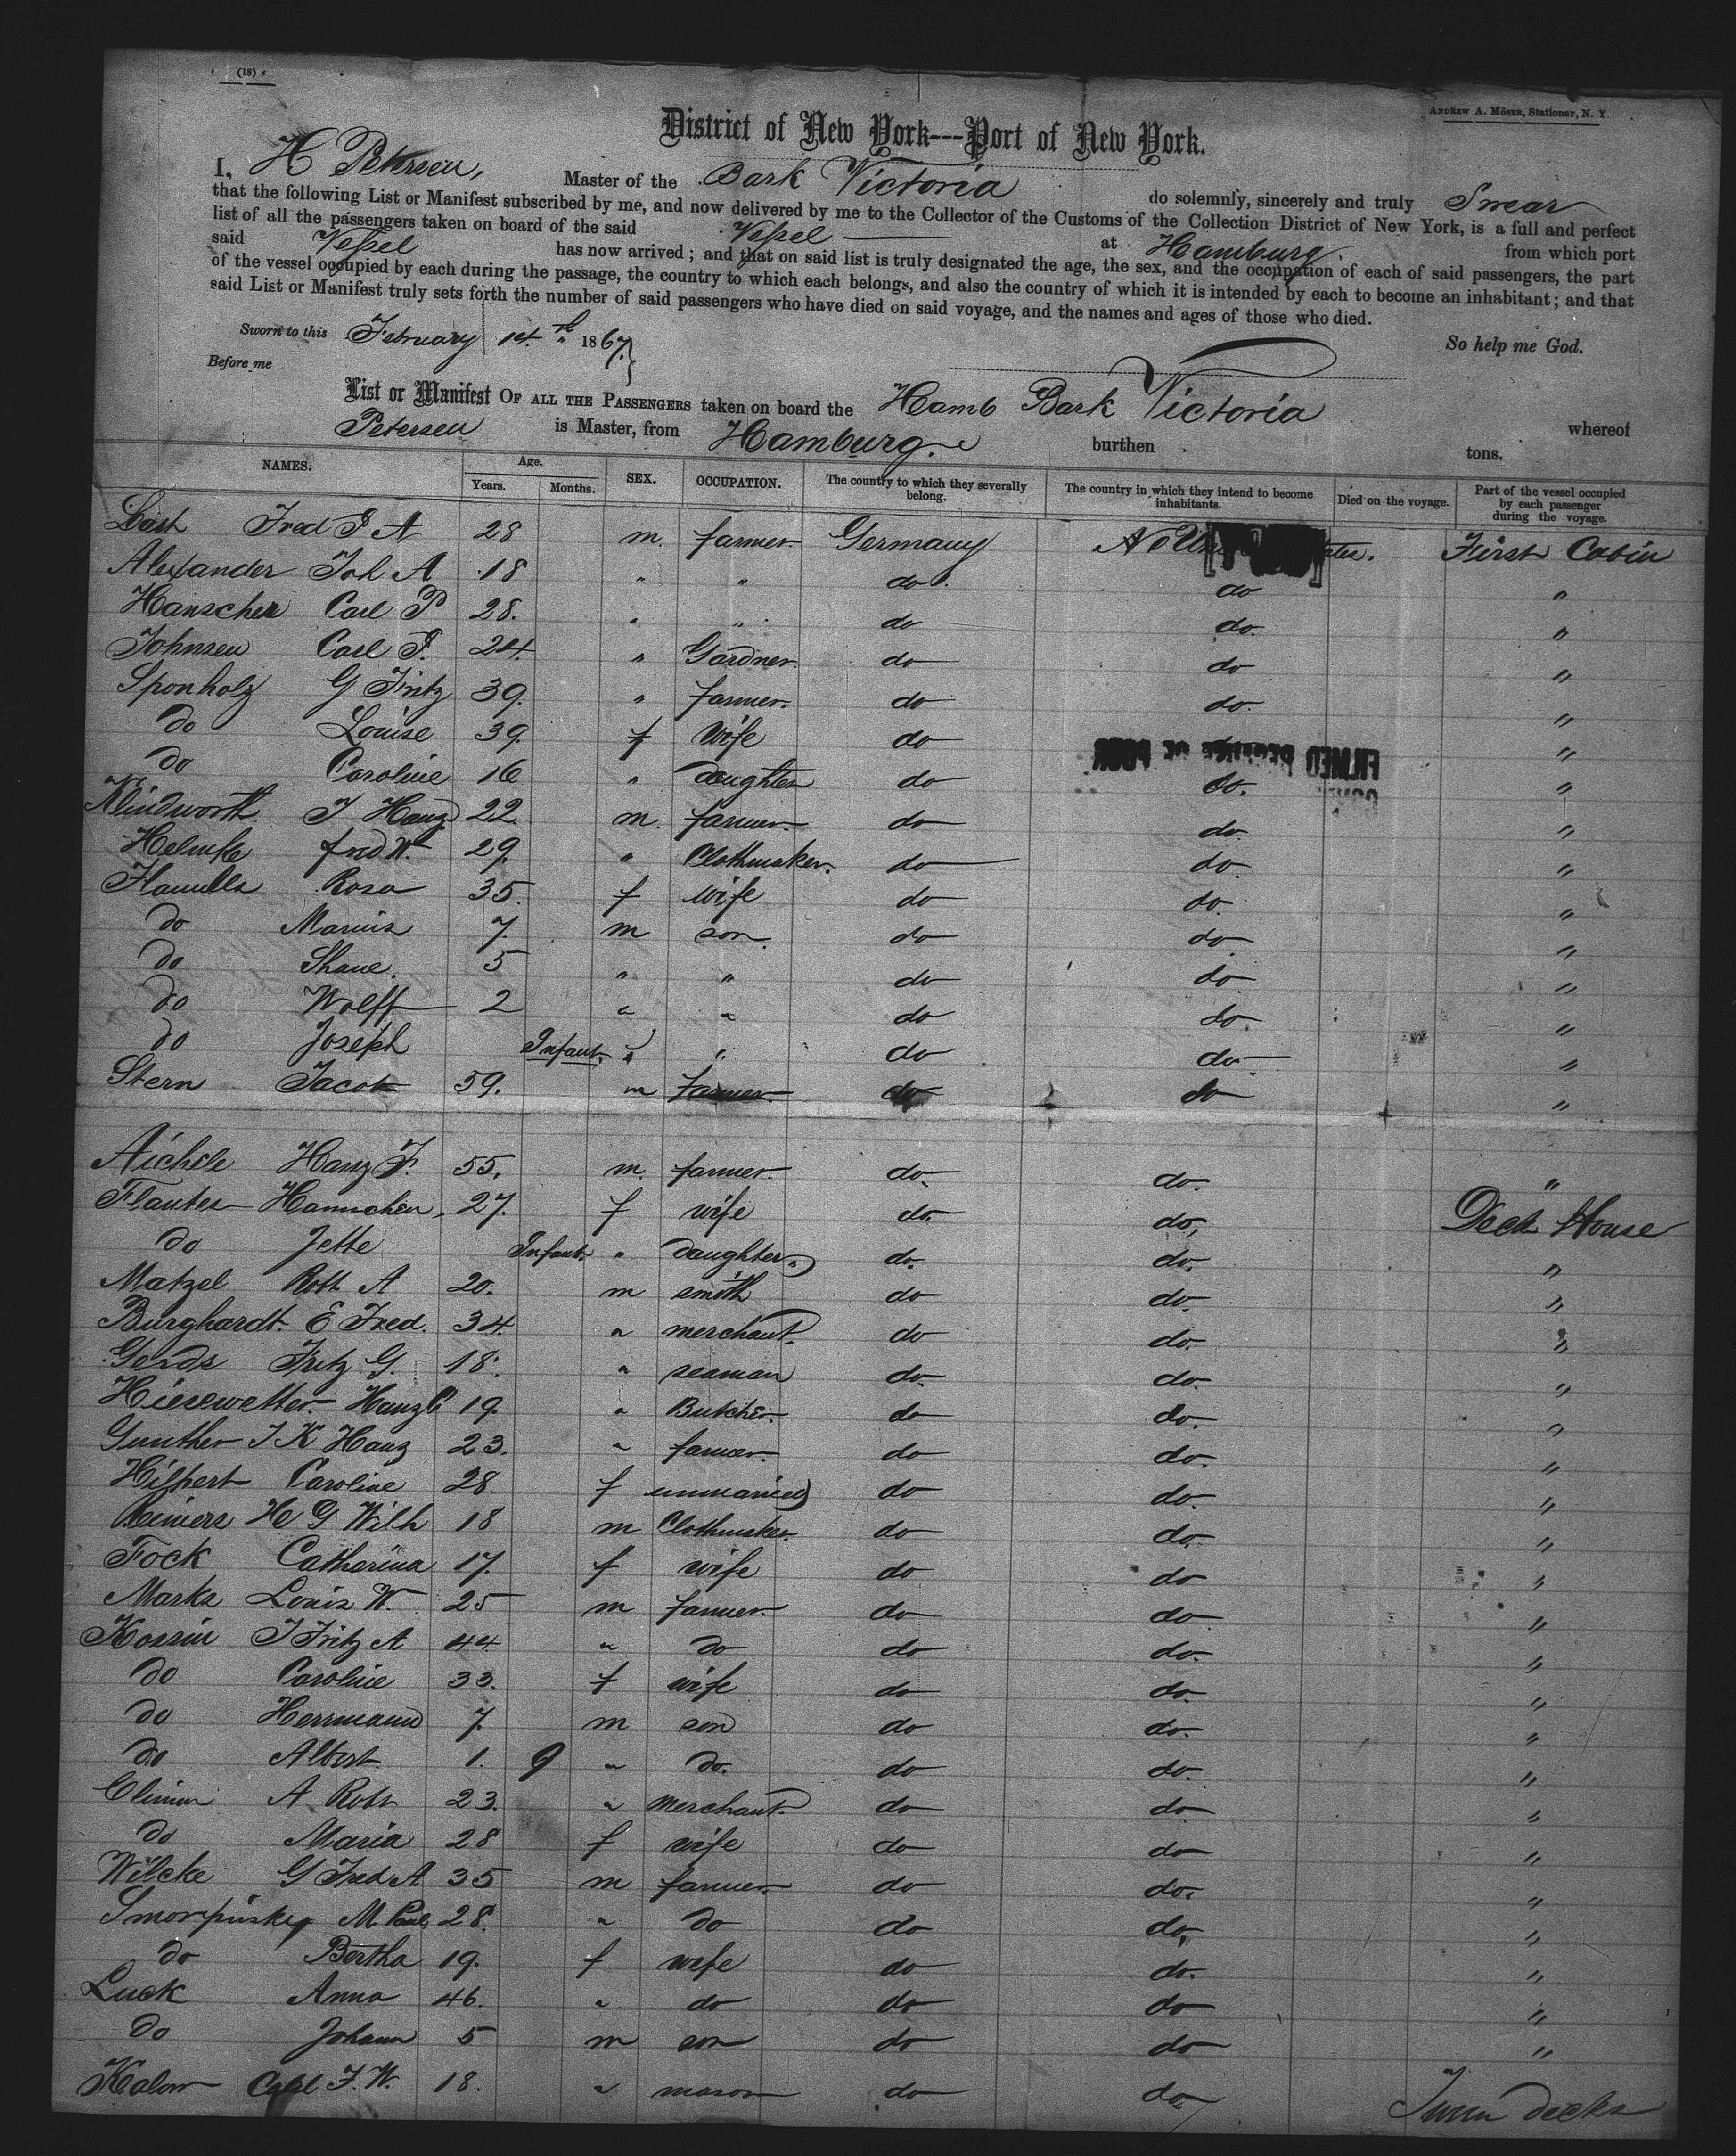 (18)
ANDREW A. MÖSER, Stationer, N. Y.
District of New York---Port of New York.
I, H Petersen, Master of the Bark Victoria do solemnly, sincerely and truly Swear
that the following List or Manifest subscribed by me, and now delivered by me to the Collector of the Customs of the Collection District of New York, is a full and perfect
list of all the passengers taken on board of the said Vessel at Hamburg. from which port
said Vessel has now arrived; and that on said list is truly designated the age, the sex, and the occupation of each of said passengers, the part
of the vessel occupied by each during the passage, the country to which each belongs, and also the country of which it is intended by each to become an inhabitant; and that
said List or Manifest truly sets forth the number of said passengers who have died on said voyage, and the names and ages of those who died.
Sworn to this February 14.th 1867. So help me God.
Before me
List or Manifest OF ALL THE PASSENGERS taken on board the Hamb Bark Victoria whereof
Petersen is Master, from Hamburg. burthen tons.
NAMES. Age. Years. Months. SEX. OCCUPATION. The country to which they severally belong. The country in which they intend to become inhabitants. Died on the voyage. Part of the vessel occupied by each passenger during the voyage.
Fred 28 m. farmer. Germany First Cabin
Alexander Joh A 18 " " do. do "
Hanschen Carl P 28. " " do do. "
Johnsen Carl 24. " Gardner. do do "
Sponholz G Fritz 39. " farmer. do do. "
do Louise 39. f wife do "
do Caroline 16 " daughter do do. "
Klindworth J Hanz 22. m. farmer. do do. "
Helmke fred W. 29. " Clothmaker. do do. "
Rosa 35. f wife do do. "
do 7. m son. do do "
do 5 " " do do "
do Wolff 2 " " do do "
do Joseph Infant. " " do do "
Stern Jacob 59. m farmer. do do "
Aichele Hanz F. 55. m. farmer. do. do. "
Hannchen, 27. f wife do. do, Deck House
do Jette Infant. " daughter. do. do. "
Matzel Robt A 20. m smith do do. "
Burghardt. E Fred. 34. " merchant. do do. "
Gerds Fritz G. 18. " seaman do. do. "
Hanz 19. " Butcher. do do. "
Gunther J K Hanz 23. " farmer. do do. "
Hilpert Caroline 28. f unmaried do do. "
Reiners H G Wilh 18 m Clothmaker. do do. "
Fock Catherina 17. f wife do do "
Marks Louis W. 25 m farmer. do do "
Kossin J Fritz A 44. " do do do. "
do Caroline 33. f wife do do. "
do Herrmann 7. m son do do. "
do Albert. 1. 9 " do. do do. "
A Robt 23. " merchant. do do "
do Maria 28 f wife do do "
Wilcke G Fred A 35 m farmer. do do. "
M. Paul 28. " do do do, "
do Bertha 19. f wife do do. "
Luck Anna 46. " do do do "
do Johann 5 m son do do "
Carl F. W. 18. " mason do do. Twen decks